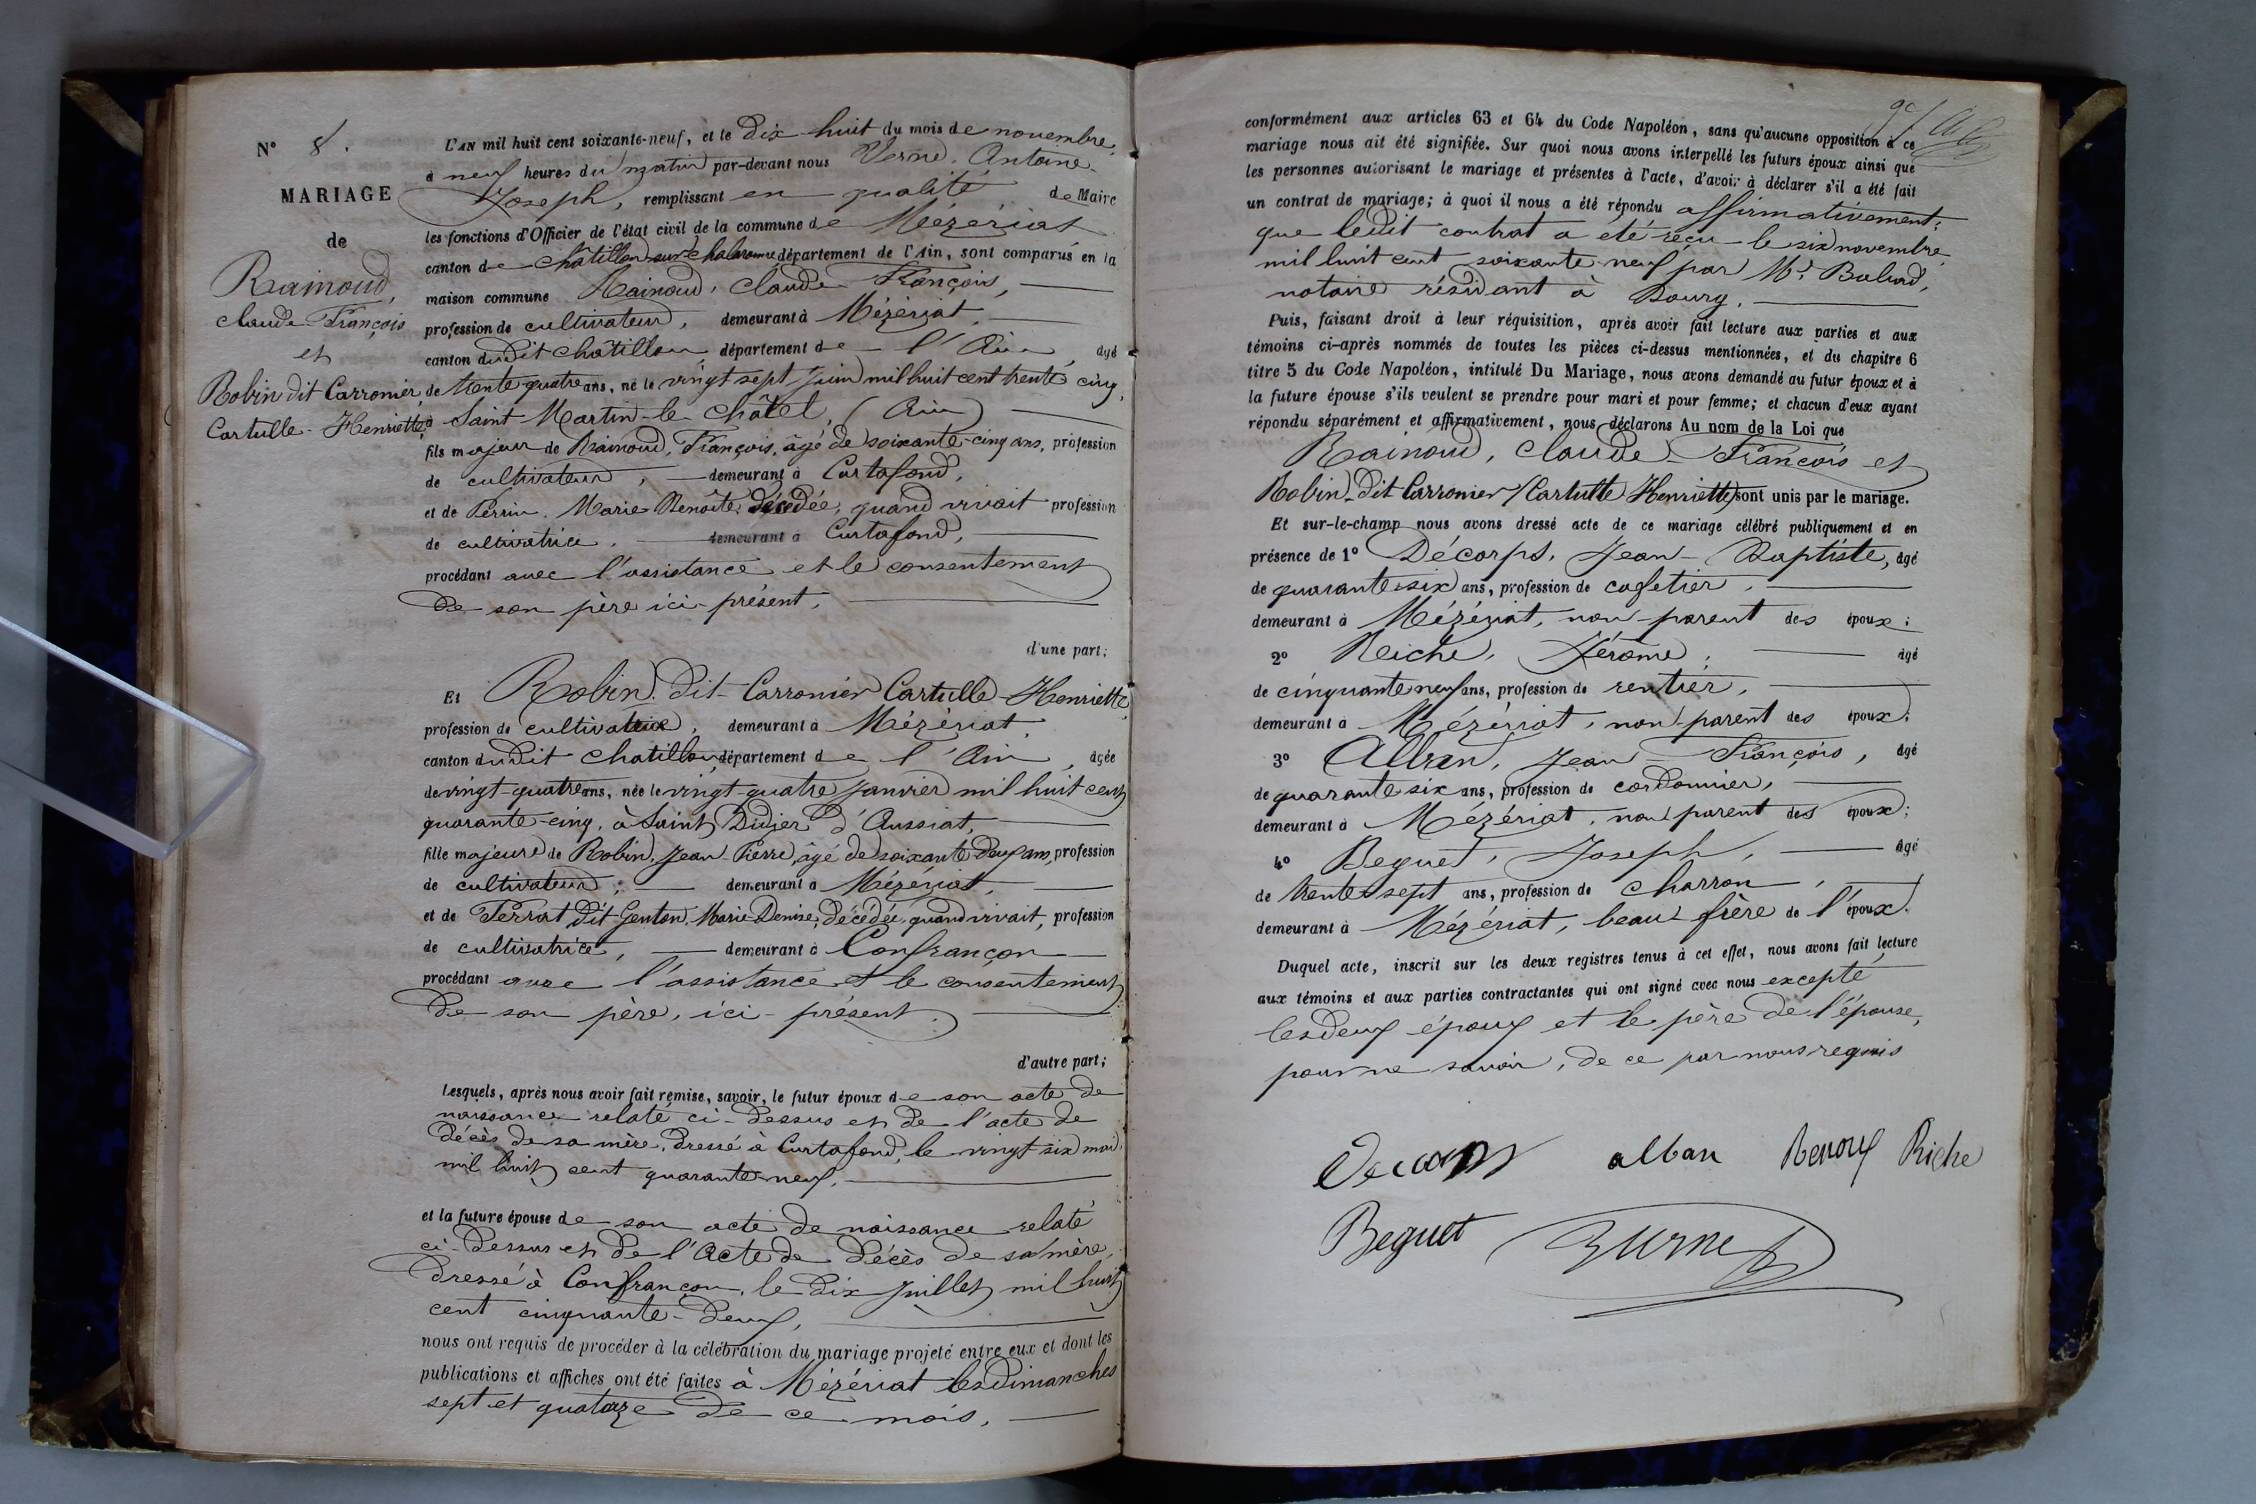 N° 8.
MARIAGE
de
Rainoud,
Claude François
et
Robin dit Carronier,
Cartulle-Henriette
L'AN mil huit cent soixante-neuf, et le dix-huit du mois de novembre,
à neuf heures du matin par-devant nous Verne, Antoine
Joseph, remplissant en qualité de Maire
les fonctions d'Officier de l'état civil de la commune de Mézériat
canton de Châtillon sur Chalaronne département de l'Ain, sont comparus en la
maison commune Rainoud, Claude François,
profession de cultivateur, demeurant à Mézériat,
canton dudit Châtillon, département de l'Ain, âgé
de trente quatre ans, né le vingt sept Juin mil huit cent trente cinq,
à Saint-Martin-le-Châtel, (Ain)
fils majeur de Rainoud, François, âgé de soixante-cinq ans, profession
de cultivateur, demeurant à Curtafond,
et de Perrin, Marie Benoîte, décédée, quand vivait profession
de cultivatrice, demeurant à Curtafond,
procédant avec l'assistance et le consentement
de son père ici présent,
d'une part;
Et Robin dit Carronier Cartulle-Henriette,
profession de cultivatrice, demeurant à Mézériat,
canton dudit Chatillon, département de l'Ain, âgée
de vingt-quatre ans, née le vingt-quatre Janvier mil huit cent
quarante-cinq, à Saint Didier d'Aussiat,
fille majeure de Robin, Jean-Pierre, âgé de soixante deux ans, profession
de cultivateur, demeurant à Mézériat,
et de Perrat dit Genton, Marie-Denise, décédée, quand vivait, profession
de cultivatrice, demeurant à Confrançon
procédant avec l'assistance et le consentement
de son père, ici-présent.
d'autre part;
Lesquels, après nous avoir fait remise, savoir, le futur époux de son acte de
naissance relaté ci-dessus et de l'acte de
décès de sa mère, dressé à Curtafond, le vingt six mai
mil huit cent quarante-neuf,
et la future épouse de son acte de naissance relaté
ci-dessus et de l'Acte de décès de sa mère,
dressé à Confrançon, le dix Juillet mil huit
cent cinquante-deux,
nous ont requis de procéder à la célébration du mariage projeté entre eux et dont les
publications et affiches ont été faites à Mézériat les dimanches
sept et quatorze de ce mois,
conformément aux articles 63 et 64 du Code Napoléon, sans qu'aucune opposition à ce
mariage nous ait été signifiée. Sur quoi nous avons interpellé les futurs époux ainsi que
les personnes autorisant le mariage et présentes à l'acte, d'avoir à déclarer s'il a été fait
un contrat de mariage; à quoi il nous a été répondu affirmativement,
que ledit contrat a été reçu le six novembre
mil huit cent soixante-neuf par Me
notaire résidant à Bourg.
Puis, faisant droit à leur réquisition, après avoir fait lecture aux parties et aux
témoins ci-après nommés de toutes les pièces ci-dessus mentionnées, et du chapitre 6
titre 5 du Code Napoléon, intitulé Du Mariage, nous avons demandé au futur époux et à
la future épouse s'ils veulent se prendre pour mari et pour femme; et chacun d'eux ayant
répondu séparément et affirmativement, nous déclarons Au nom de la Loi que
Rainoud, Claude-François et
Robin-dit Carronier (Cartulle Henriette) sont unis par le mariage.
Et sur-le-champ nous avons dressé acte de ce mariage célébré publiquement et en
présence de 1° Décorps, Jean-Baptiste, âgé
de quarante-six ans, profession de cafetier,
demeurant à Mézériat, non-parent des époux;
2° Reiche, Jérôme, âgé
de cinquante neuf ans, profession de rentier,
demeurant à Mézériat, non-parent des époux;
3° Alban, Jean-François, âgé
de quarante six ans, profession de cordonnier,
demeurant à Mézériat, non parent des époux;
4° Beguet, Joseph, âgé
de trente sept ans, profession de charron,
demeurant à Mézériat, beau frère de l'époux.
Duquel acte, inscrit sur les deux registres tenus à cet effet, nous avons fait lecture
aux témoins et aux parties contractantes qui ont signé avec nous excepté
les deux époux et le père de l'épouse,
pour ne savoir, de ce par nous requis
Decorps alban Renoux Riche
Beguet Verne